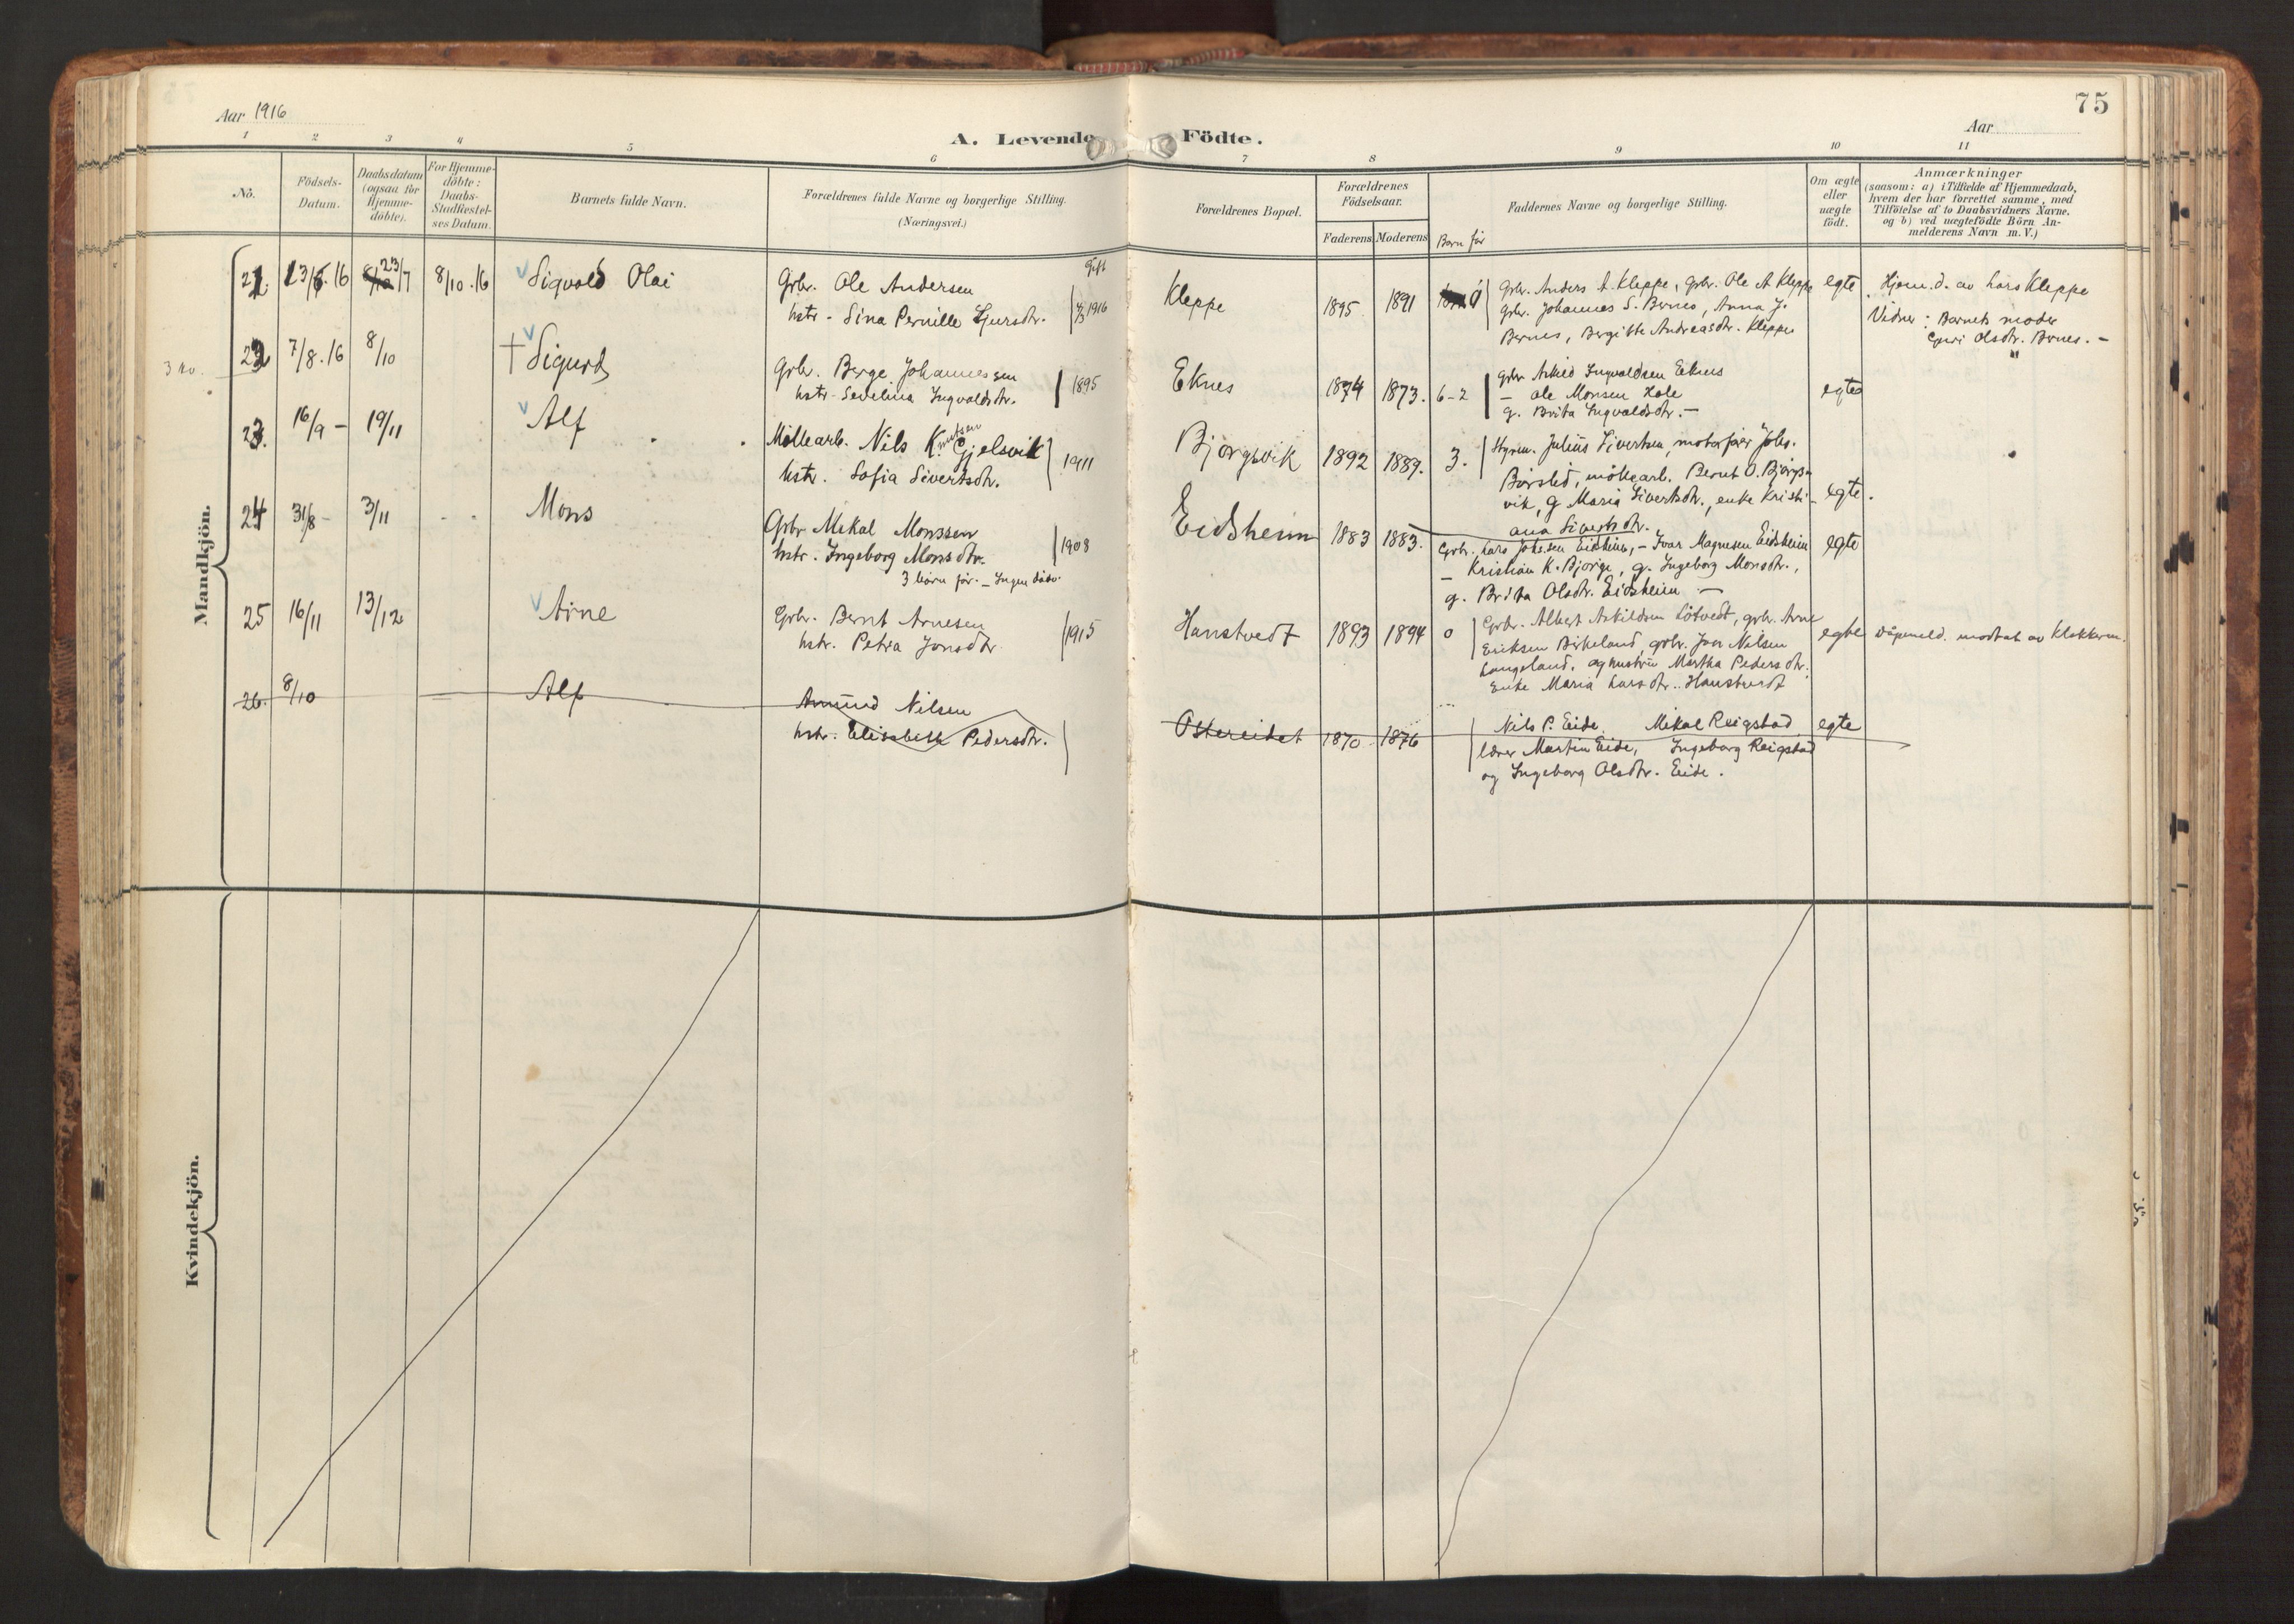 75
Aar 1916
Aar
A. Levende Födte.
1 2 3 4 5 6 7 8 9 10 11
No.
Födsels-Datum.
Daabsdatum (ogsaa for Hjemme-döbte).
For Hjemme-döbte: Daabs-Stadfestel-ses Datum.
Barnets fulde Navn.
Forældrenes fulde Navne og borgerlige Stilling.
(Næringsvei.)
Forældrenes Bopæl.
Forældrenes Födselsaar.
Faderens Moderens
Born før
Faddernes Navne og borgerlige Stilling.
Om ægte eller uægte födt.
Anmærkninger
(saasom: a) i Tilfælde af Hjemmedaab,
hvem der har forrettet samme, med
Tilföielse af to Daabsvidners Navne.
og b) ved uægtefödte Börn An-
melderens Navn m. V.)
Mandkjön.
21. 13/6.16 23/7 8/10.16 Sigvald Olai
Grbr. Ole Andersen
hstr. Sina Pernille Gjursdtr.
Gift 1916
Kleppe 1895 1891 0
Grbr. Anders A. Kleppe, grbr. Ole A Kleppe
grbr. Johannes S. Bernes, Anna J.
Bernes, Bergitte Andreasdtr. Kleppe
egte
Hjem.d. av Lars Kleppe
Vidner: Barnets moder
Guri Olsdtr. Bernes. -
22 7/8.16 8/10 † Sigurd
Grbr. Berge Johannessen
hstr. Sevelina Ingvaldsdtr.
1895
Eknes 1874 1873. 6-2
grbr Askild Ingvaldsen Eknes
- Ole Monsen Hole
g. Brita Ingvaldsdtr. -
egte
23. 16/9 - 19/11 Alf
Möllearb. Nils Knutsen Gjelsvik
hstr. Sofia Sivertsdtr.
1911
Bjørgvik 1892 1889. 3.
Styrm. Julius Sivertsen, motorfører Johs.
Børslid, möllearb. Bernt O. Bjørgs-
vik, g Maria Sivertsdtr., enke Kristi-
ana Sivertsdtr.
egte.
24 31/8 - 3/11 Mons
Grbr Mikal Monssen
hstr. Ingeborg Monsdtr.
3 börn før. - Ingen døde.
1908
Eidsheim 1883 1883.
Grbr. Lars Johnsen Eidsheim, - Ivar Magnesen Eidsheim
- Kristian K. Bjørge, g. Ingeborg Monsdtr.,
g. Brita Olsdtr. Eidsheim -
egte
25 16/11 13/12 Arne
Grbr. Bernt Arnesen
hstr. Petra Jonsdtr
1915
Hanstvedt 1893 1894 0
Grbr. Albert Askildsen Lötvedt, grbr. Arne
Eriksen Birkeland, grbr. Jon Nilsen
Langeland, og hustru Martha Pedersdtr.
Enke Maria Larsdtr. Hanstvedt
egte
Dåpmeld. modtat av klokkeren.
26. 8/10 Alf
Amund Nilsen
hstr. Elisabeth Pedersdtr.
Ostereidet 1870 1876
Nils P. Eide, Mikal Reigstad
lærer Martin Eide, Ingeborg Reigstad
og Ingeborg Olsdtr. Eide.
egte
Kvindekjön.